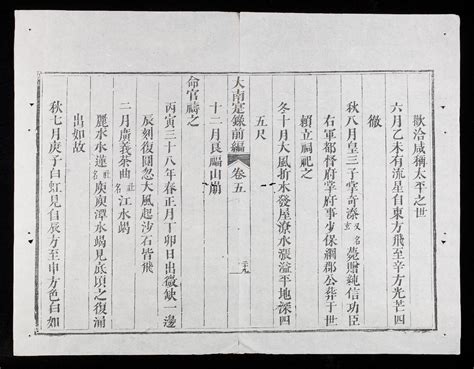 歡洽咸稱太平之世
六月乙未有流星自東方飛至辛方光芒四
徹
秋八月皇三子掌奇溱又名玄薨贈純信功臣
右軍都督府掌府事少保綱郡公葬于世
賴立祠祀之
冬十月大風折木發屋潦水漲溢平地深四
五尺
大南寔錄前編 卷五 二十九
十二月艮嶇山崩
命官禱之
丙寅三十八年春正月丁卯日出微缺一邊
辰刻復圓忽大風起沙石皆飛
二月廣義茶曲社名江水竭
麗水水蓮社名庾潭水竭見底頃之復涌
出如故
秋七月庚子白虹見自辰方至申方色白如